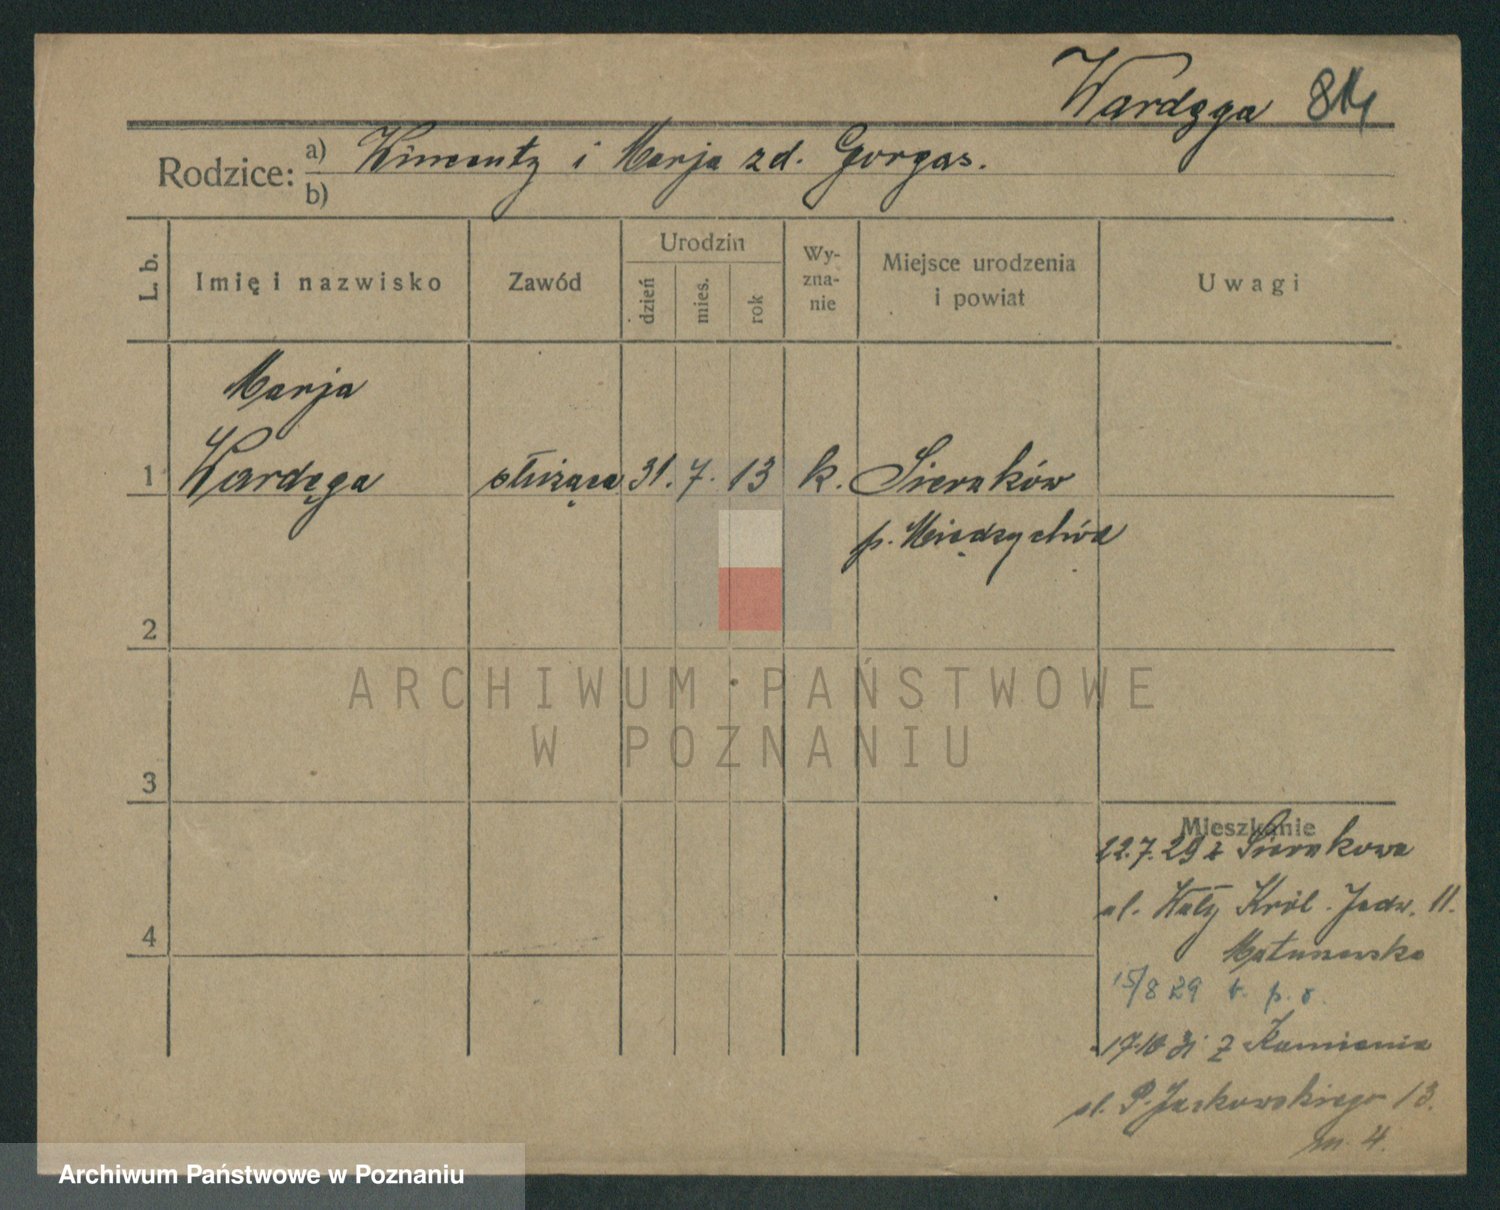 Wardęga 814
Rodzice: a) Wincenty i Marja zd. Gorgas.
b)
L. b.
Imię i nazwisko
Zawód
Urodzin
dzień
mies.
rok
Wy-
zna-
nie
Miejsce urodzenia
i powiat
Uwagi
Marja
1 Wardęga służąca 31. 7. 13 k. Sieraków
p. Międzychód
2
ARCHIWUM PAŃSTWOWE
W POZNANIU
3
Mieszkanie
22.7.29 z Sierakowa
ul. Wały Król. Jadw. 11.
4
Matuszewska
15/8 29
17.10 31 z Kamienia
ul. P. Jackowskiego 13.
m. 4.
Archiwum Państwowe w Poznaniu